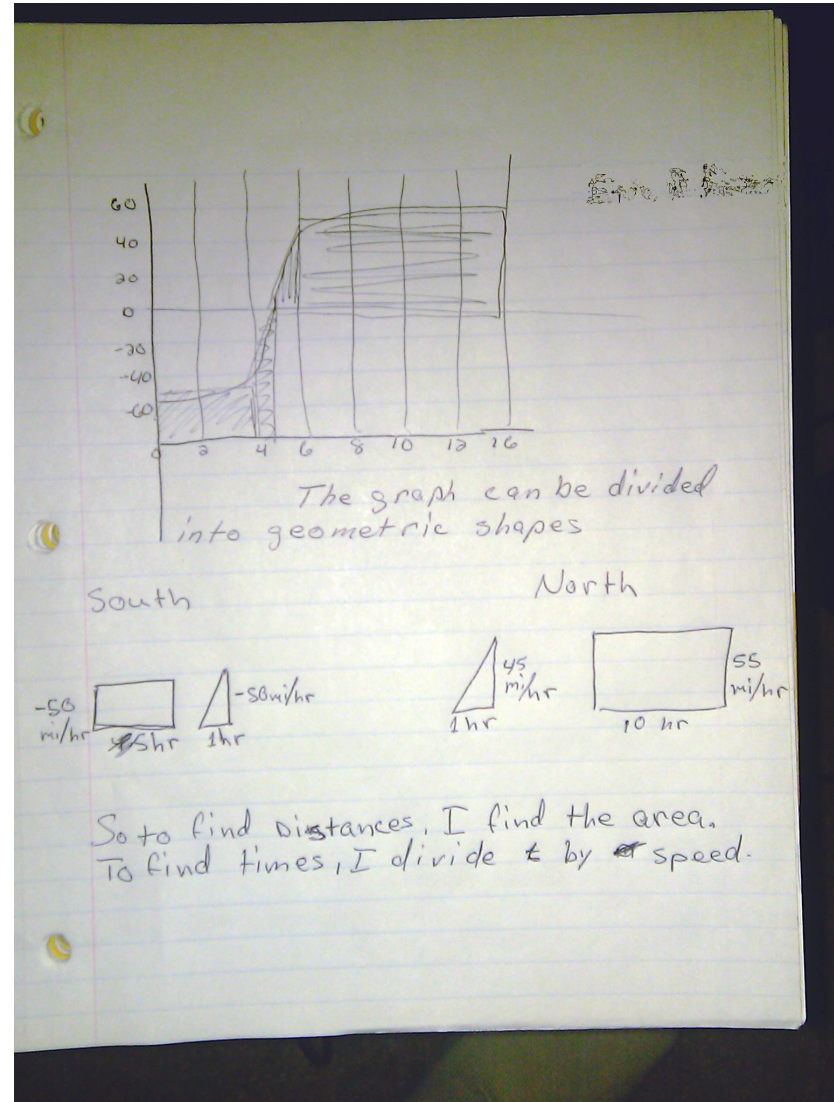 60
40
20
0
-20
-40
-60
0 2 4 6 8 10 12 16
The graph can be divided
into geometric shapes
South North
-50 mi/hr
5hr
-50mi/hr
1hr
45 mi/hr
1hr
55 mi/hr
10 hr
So to find Distances, I find the area.
To find times, I divide t by speed.